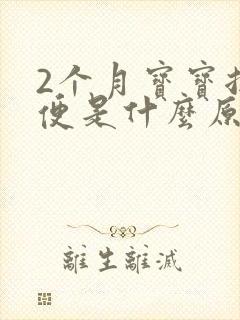 2个月寶寶
便是什麼原
離生離滅